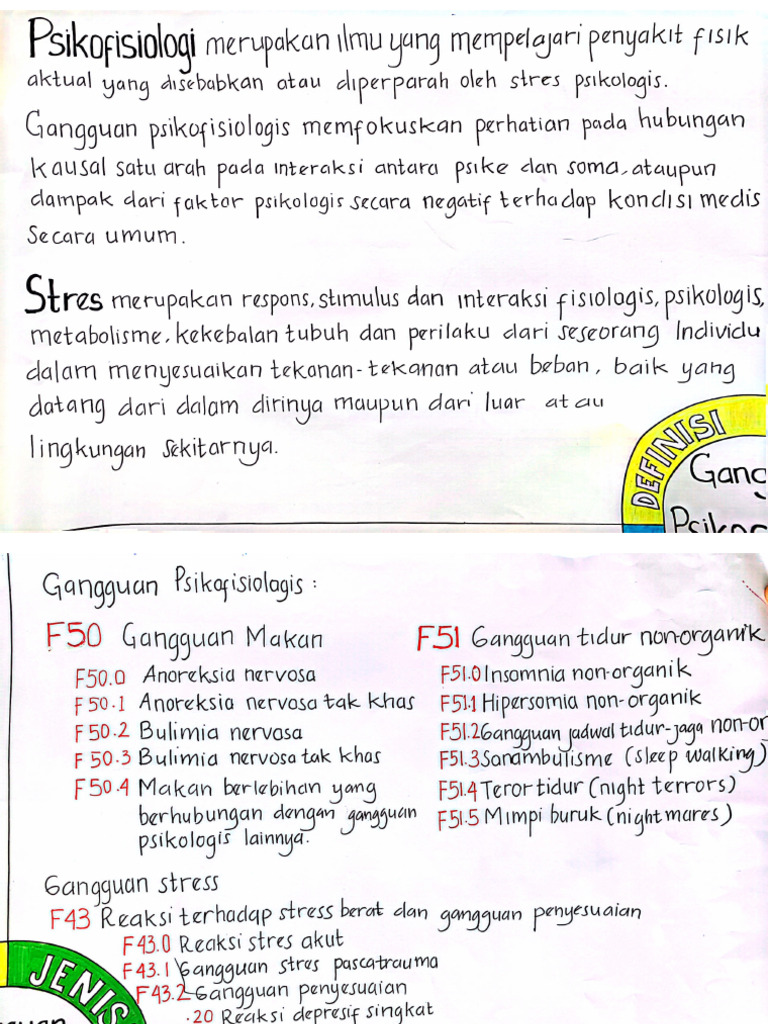 Psikofisiologi merupakan ilmu yang mempelajari penyakit fisik
aktual yang disebabkan atau diperparah oleh stres psikologis.
Gangguan psikofisiologis memfokuskan perhatian pada hubungan
kausal satu arah pada interaksi antara psike dan soma, ataupun
dampak dari faktor psikologis secara negatif terhadap kondisi medis
Secara umum.
Stres merupakan respons, stimulus dan interaksi fisiologis, psikologis,
metabolisme, kekebalan tubuh dan perilaku dari seseorang Individu
dalam menyesuaikan tekanan-tekanan atau beban, baik yang
datang dari dalam dirinya maupun dari luar atau
lingkungan sekitarnya.
DEFINISI
Gang
Gangguan Psikofisiologis :
F50 Gangguan Makan
F50.0 Anoreksia nervosa
F50.1 Anoreksia nervosa tak khas
F50.2 Bulimia nervosa
F50.3 Bulimia nervosa tak khas
F50.4 Makan berlebihan yang
berhubungan dengan gangguan
psikologis lainnya.
F51 Gangguan tidur non-organik
F51.0 Insomnia non-organik
F51.1 Hipersomia non-organik
F51.2 Gangguan jadwal tidur-jaga non-or
F51.3 Sonambulisme (sleep walking)
F51.4 Teror tidur (night terrors)
F51.5 Mimpi buruk (night mares)
Gangguan stress
F43 Reaksi terhadap stress berat dan gangguan penyesuaian
F43.0 Reaksi stres akut
F43.1 Gangguan stres pascatrauma
F43.2 Gangguan penyesuaian
.20 Reaksi depresif singkat
JENIS